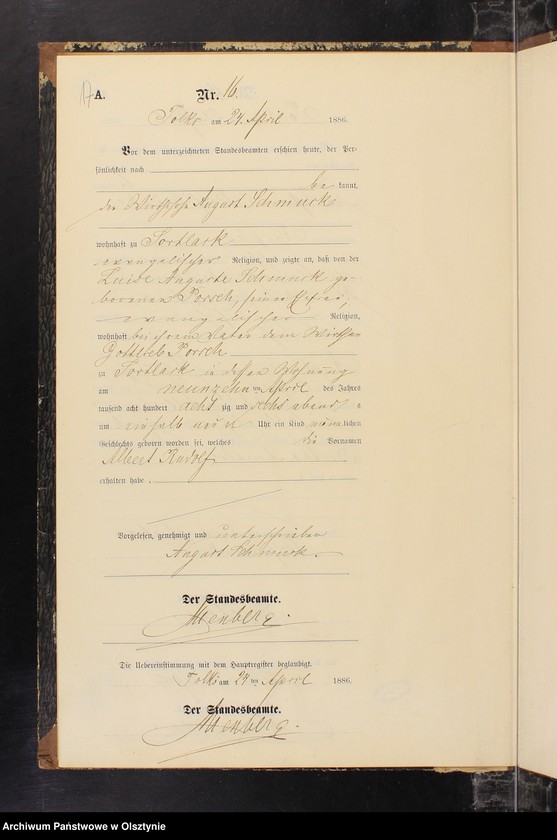 17 A.
Nr. 16.
Tolks am 24. April 1886.
Vor dem unterzeichneten Standesbeamten erschien heute, der Per-
sönlichkeit nach
be kannt,
der August Schmuck
wohnhaft zu Sortlack
evangelischer Religion, und zeigte an, daß von der
Luise Auguste Schmuck ge-
borenen Porsch, seiner Ehefrau,
evangelischer Religion,
wohnhaft bei ihrem Vater dem Wirthen
Gottlieb Porsch
zu Sortlack in dessen Wohnung
am neunzehn ten April des Jahres
tausend acht hundert acht zig und sechs abends
um ein halb neun Uhr ein Kind männlichen
Geschlechts geboren worden sei, welches die Vornamen
Albert Rudolf
erhalten habe.
Vorgelesen, genehmigt und unterschrieben
August Schmuck.
Der Standesbeamte.
Die Uebereinstimmung mit dem Hauptregister beglaubigt.
Tolks am 24 ten April 1886.
Der Standesbeamte.
Archiwum Państwowe w Olsztynie